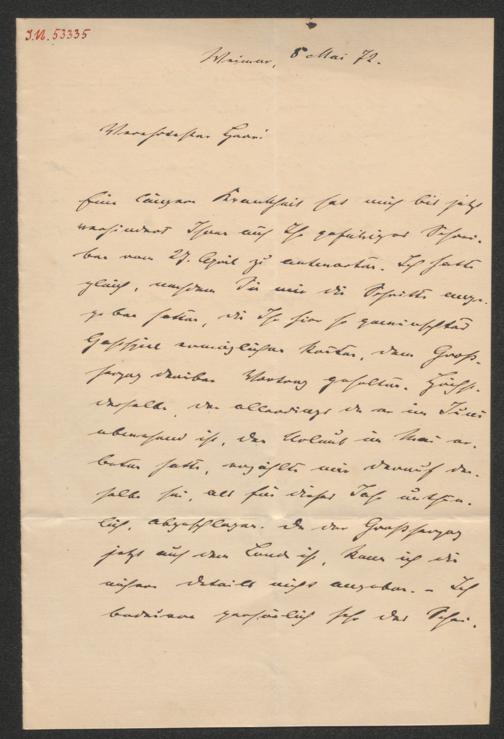 I.N. 53335
Weimar, 8 Mai 72.
Verehrtester Herr!
Eine längere Krankheit hat mich bis jetzt
verhindert Ihnen auf Ihr gefälliges Schrei-
ben vom 27. April zu antworten. Ich hatte
gleich, nachdem Sie mir die Schritte ange-
geben hatten, die Ihr hier so gewünschtes
Gastspiel ermöglichen könten, dem Groß-
herzog darüber Vortrag gehalten. Höchst-
derselbe, der allerdings da er im Juni
abwesend ist, den Urlaub im Mai er-
beten hatte, erzählte mir darauf der-
selbe sei, als für dieses Jahr unthun-
lich, abgeschlagen. Da der Großherzog
jetzt auf dem Lande ist, kann ich die
nähern Details nicht angeben. – Ich
bedaure persönlich sehr das Schei-